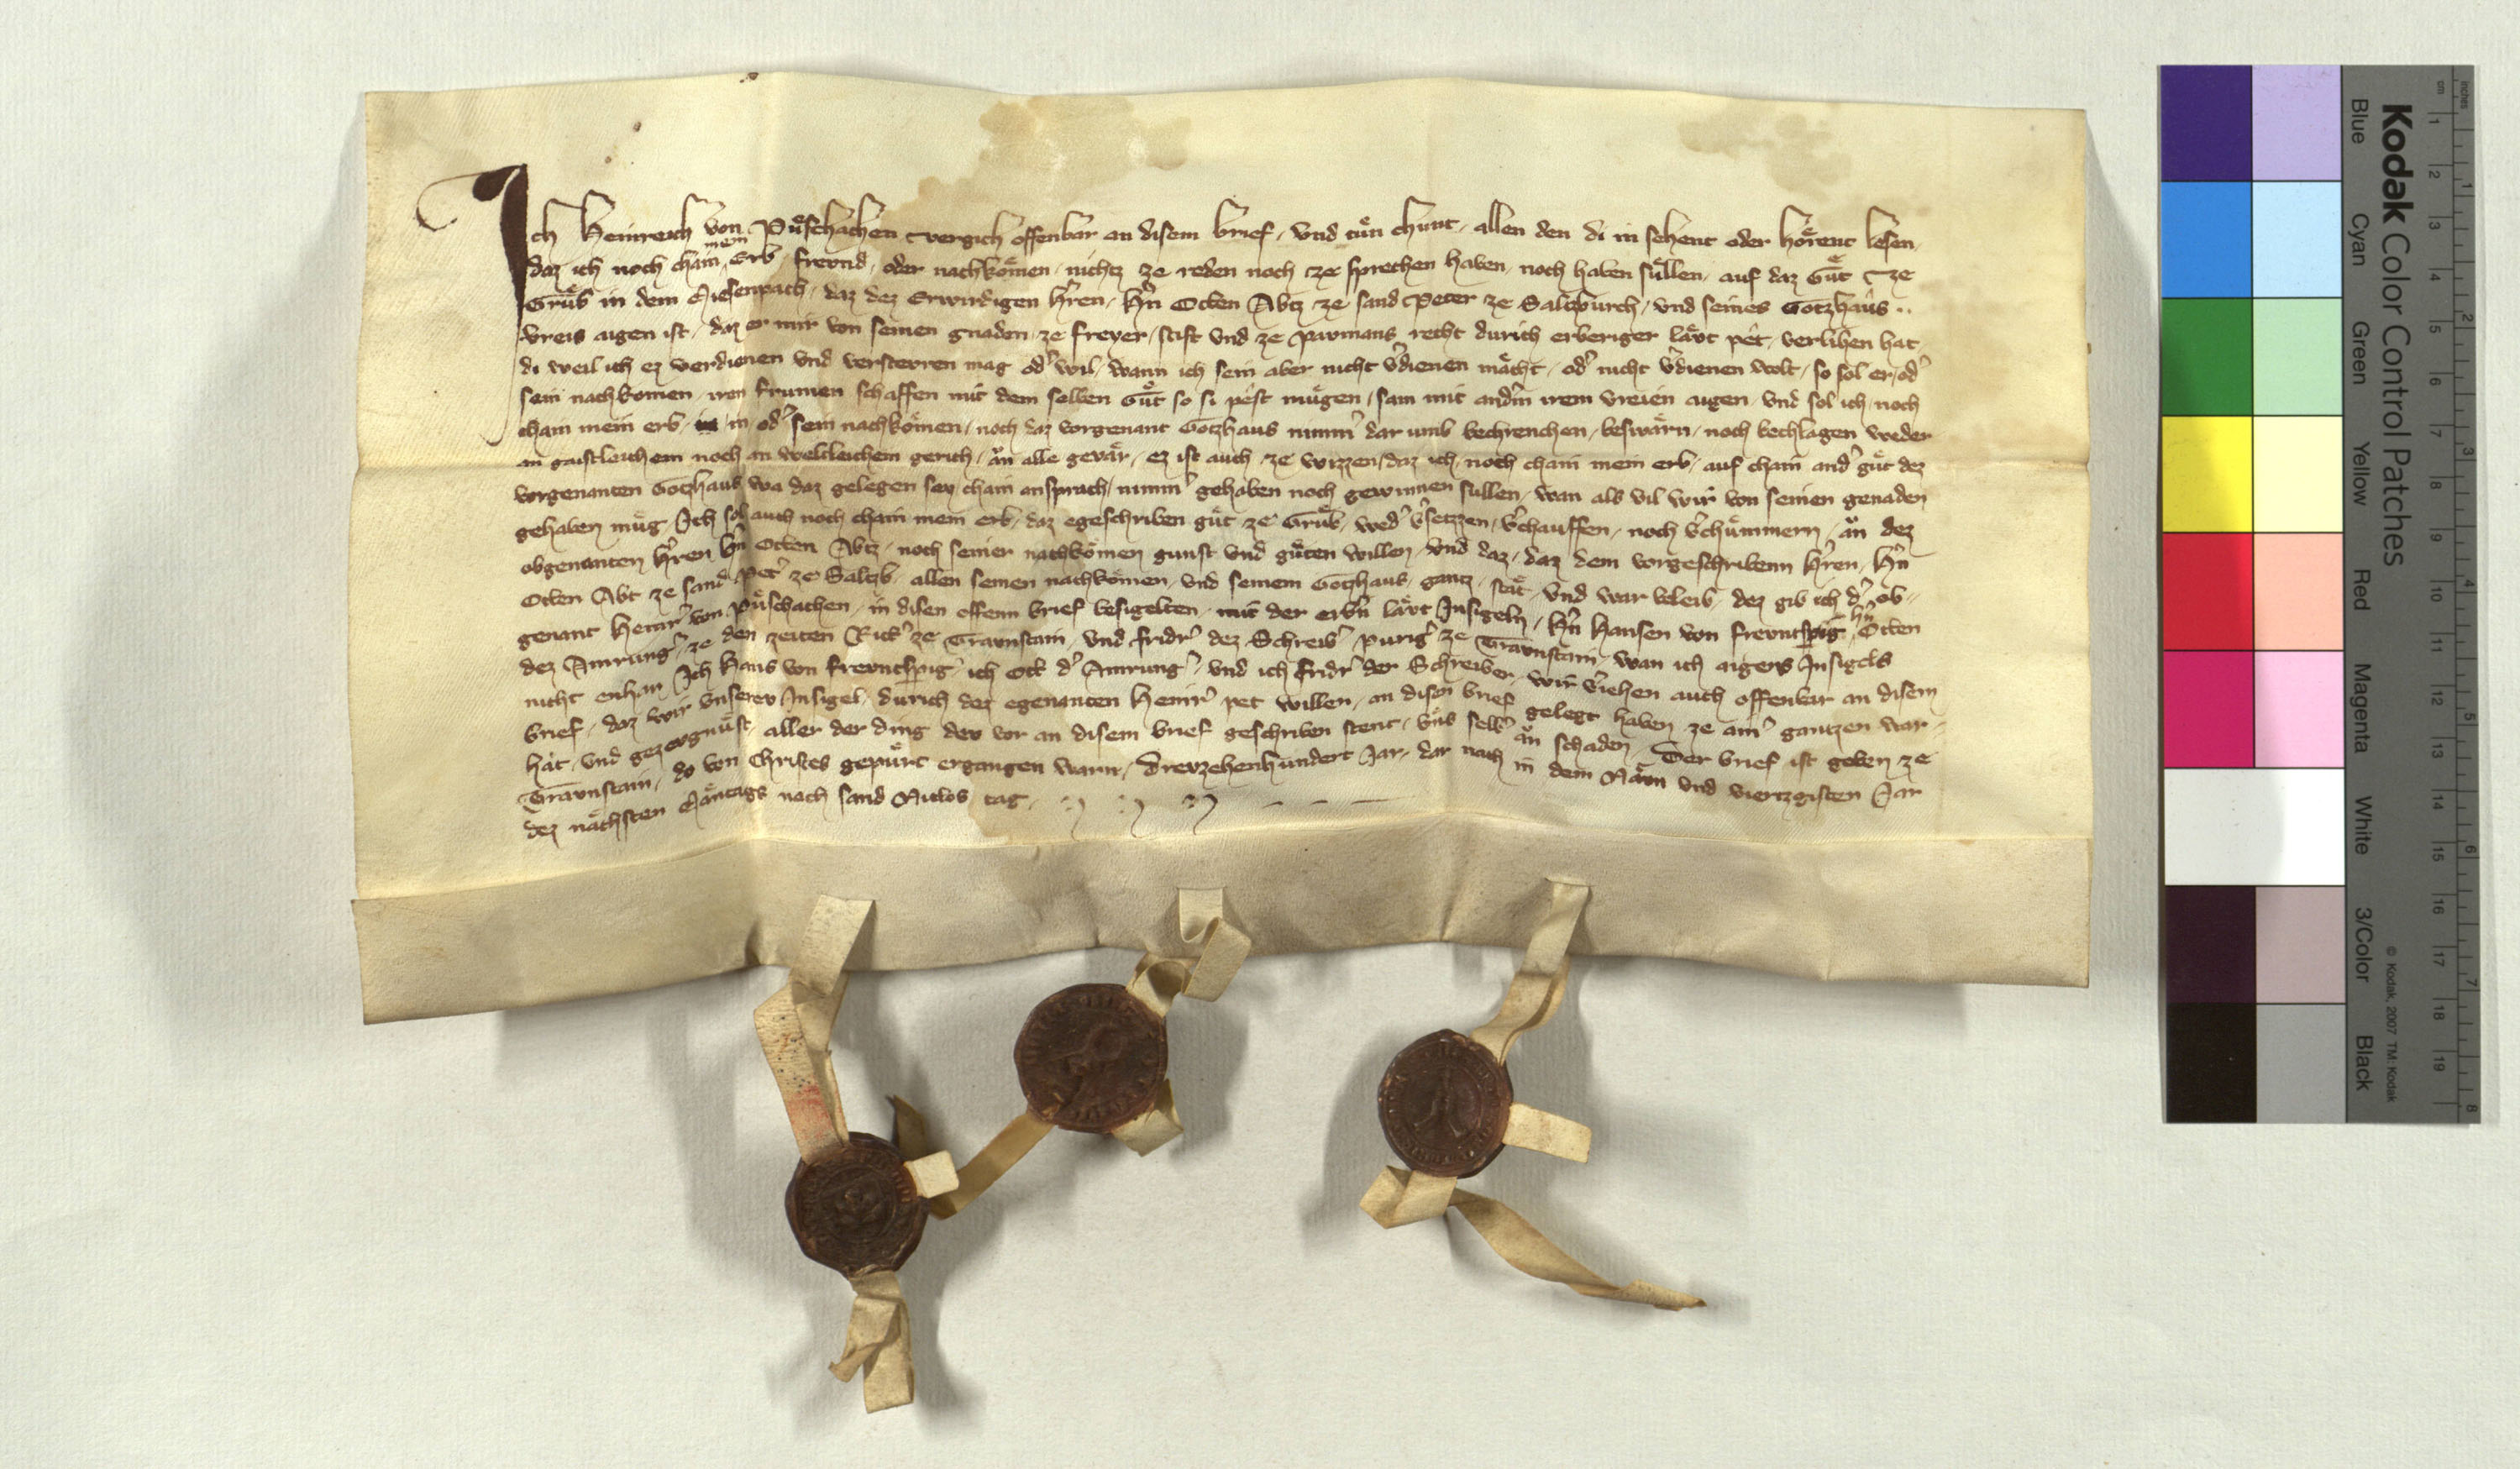 Ich Heinreich von Pueschachen vergich offenbar an disem brief, vnd tuen chunt, allen den di in sehent oder hoerent lesen,
daz ich noch chain mein Erb, frevnd, oder nachkoemen, nichtz ze reden noch ze sprechen haben, noch haben suellen, auf daz Guet ze
Grueb in dem Miesenpach, daz dez Erwirdigen h'ren, h'n Otten Abtz ze sand Peter ze Saltzburch, vnd seines Gotzhaus ..
vreis aigen ist, daz er mir von seinen gnaden, ze freyer, stift vnd ze pawmans recht durich erberiger laevt pet, verlihen hat,
di weil ich ez verdienen vnd verstevren mag od' wil, wann ich sein aber nicht v'dienen maecht, od' nicht v'dienen wolt, so sol er, od'
sein nachkomen, iren frumen schaffen mit dem selben Guet so si pest muegen, sam mit and'm irem vreien aigen, vnd sol ich, noch
chain mein erb, in od' sein nachkoemen, noch daz vorgenant Gotzhaus nimm' dar umb bechrenchen, beswaern, noch bechlagen weder
an gaistleichem noch an weltleichem gerich, aen alle gevaer, ez ist auch ze wizzen, daz ich, noch chain mein erb, auf chain and' guet dez
vorgenanten Gotzhaus wa daz gelegen sey chain ansprach, nimm' gehaben noch gewinnen sullen, wan als vil wir von seinen genaden
gehaben mueg Ich sol auch noch chain mein erb, daz egeschriben guet ze Grueb, wed' v'setzzen, v'chauffen, noch v'chuemmern, aen dez
obgenanten h'ren h'n Otten Abtz, noch seiner nachkoemen gunst vnd gueten willen, vnd daz, daz dem vorgeschribenn h'ren, h'n
Otten Abt ze sand Pet' ze Saltzb', allen seinen nachkoemen, vnd seinem Gotzhaus, gantz, staet, vnd war beleib, dez gib ich d' ob-
genant Heinr' von Pueschachen, in disen offenn brief besigelten, mit der erb'n laevt Insigeln, h'n Hansen von frevntsp'g, h'n Otten
dez Amrung', ze den zeiten Rict' ze Travnstain, vnd fridr' dez Schreib', purig' ze Travnstain, wan ich aigens Insigels
nicht enhan Ich Hans von frevntsp'g, ich Ott d' Amrung', vnd ich fridr' der Schreiber, wir v'iehen auch offenbar an disem
brief, daz wir vnserev Insigel, durich dez egenanten Heinr' pet willen, an disen brief gelegt haben, ze ain' gantzen war-
hait, vnd gezevgnuest, aller der ding dev vor an disem brief geschriben stent, vns selb' aen schaden, Der brief ist geben ze
Travnstain, do von Christes gepuert ergangen warn, Drevzehenhundert Jar, dar nach in dem Naevn vnd viertzgisten Jar
dez naechsten Maentags nach sand Niclos tag.
Kodak Color Control Patches
Blue Cyan Green Yellow Red Magenta White 3/Color Black
© Kodak, 2007 TM: Kodak
cm 1 2 3 4 5 6 7 8 9 10 11 12 13 14 15 16 17 18 19
inches 1 2 3 4 5 6 7 8